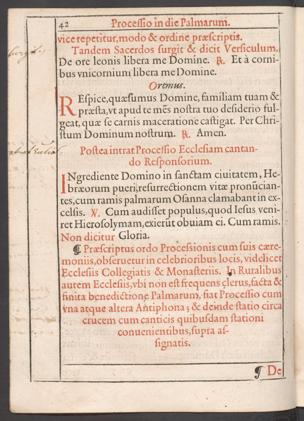 42 Processio in die Palmarum.
vice repetitur, modo & ordine præscriptis.
Tandem Sacerdos surgit & dicit Versiculum.
De ore leonis libera me Domine. ℟. Et à corni-
bus vnicornium libera me Domine.
Oremus.
REspice, quæsumus Domine, familiam tuam &
præsta, vt apud te mēs nostra tuo desiderio ful-
geat, quæ se carnis maceratione castigat. Per Chri-
stum Dominum nostrum. ℟. Amen.
Postea intrat Processio Ecclesiam cantan-
do Responsorium.
INgrediente Domino in sanctam ciuitatem, He-
bræorum pueri, resurrectionem vitæ pronūcian-
tes, cum ramis palmarum Osanna clamabant in ex-
celsis. ℣. Cum audisset populus, quod Iesus veni-
ret Hierosolymam, exierūt obuiam ei. Cum ramis.
Non dicitur Gloria.
¶ Præscriptus ordo Processionis cum suis cære-
moniis, obseruetur in celebrioribus locis, videlicet
Ecclesiis Collegiatis & Monasteriis. In Ruralibus
autem Ecclesiis, vbi non est frequens clerus, facta &
finita benedictione Palmarum, fiat Processio cum
vna atque altera Antiphona; & deinde statio circa
crucem cum canticis quibusdam stationi
conuenientibus, supra as-
signatis.
¶ De